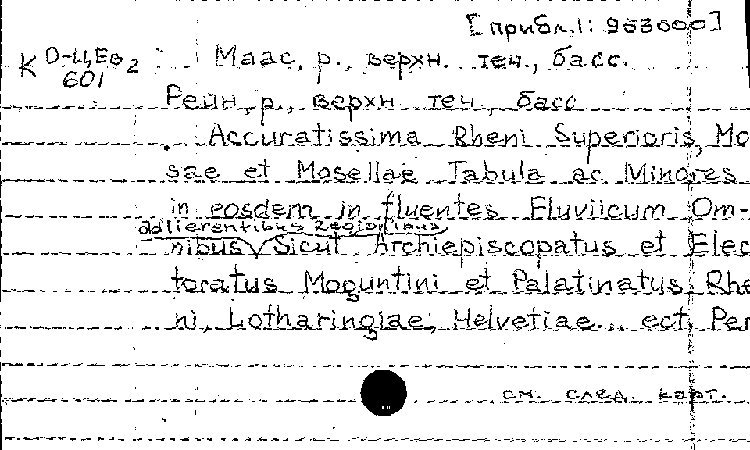 [прибл. 1: 953000]
К О-Ц,Ев 2
601
Маас, р., верхн. теч., басс.
Рейн, р., верхн теч, басс
Accuratissima Rheni Superioris, Mo
sae et Mosellae Tabula ac Minores
in eosdem in fluentes Fluviicum Om-
adlierentibus Regionibus
nibus Sicut Archiepiscopatus et Elec
toratus Moguntini et Palatinatus Rhe
ni, Lotharingiae, Helvetiae... ect. Per
см. след карт.